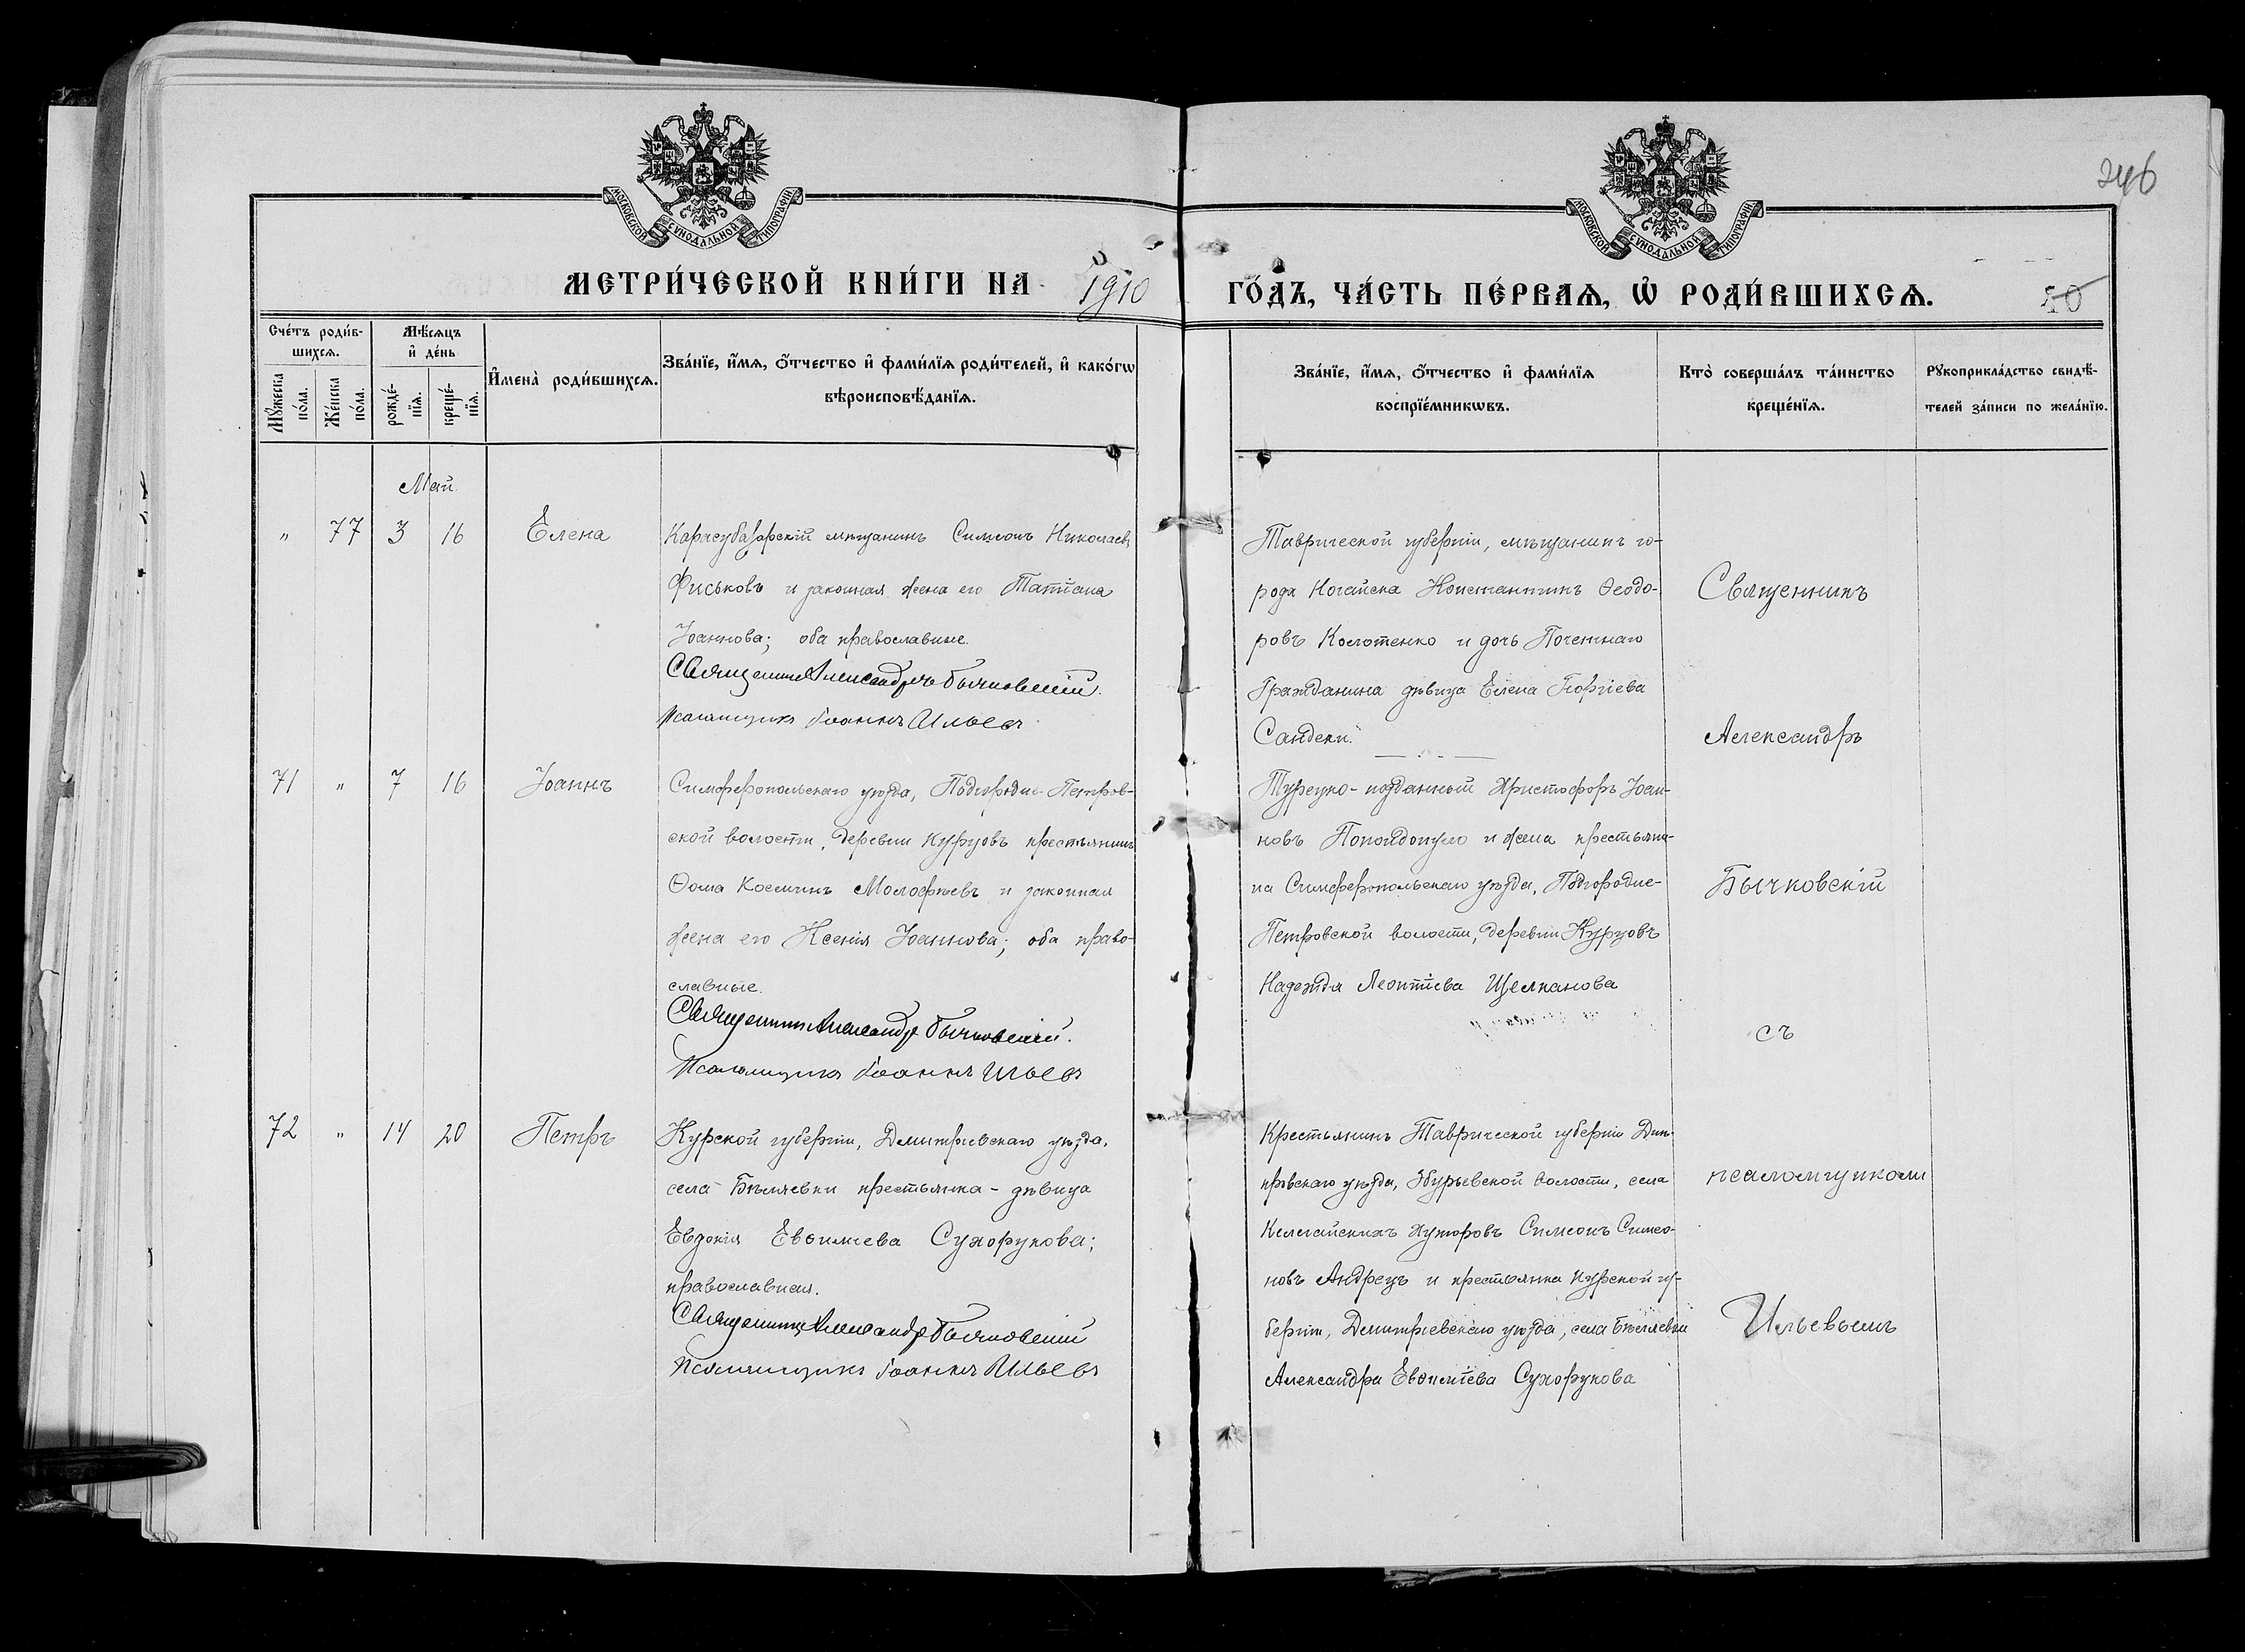 246
МОСКОВСКОЙ СУНОДАЛЬНОЙ ТИПОГРАФІИ
МОСКОВСКОЙ СУНОДАЛЬНОЙ ТИПОГРАФІИ
МЕТРИ́ЧЕСКОЙ КНИ́ГИ НА 1910
ГО́ДЪ, ЧА́СТЬ ПЕ́РВАЯ, Ѡ РОДИ́ВШИХСЯ.
50
Сче́тъ роди́в-
шихся.
Мꙋ́жеска по́ла.
Же́нска по́ла.
Мѣ́сяцъ
и де́нь
рожде́-
нїя.
креще́-
нїя.
И҆мена̀ роди́вшихся.
Зва́нїе, и҆́мя, ѻ҆́тчество и҆ фами́лїя роди́телей, и҆ како́гѡ
вѣроисповѣ́данїя.
Зва́нїе, и҆́мя, ѻ҆́тчество и҆ фами́лїя
воспрїе́мникѡвъ.
Кто̀ соверша́лъ та́инство
креще́нїя.
Рꙋкоприкла́дство свидѣ́-
телей за́писи по жела́нїю.
Май
" 77 3 16 Елена
Карасубазарскій мѣщанинъ Симеонъ Николаевъ
Фиськовъ и законная жена его Татіана
Іоаннова; оба православные.
Священникъ Александръ Бычковскій.
Псаломщикъ Іоаннъ Ильевъ
Таврической губерніи, мѣщанинъ го-
рода Ногайска Константинъ Ѳеодо-
ровъ Колотенко и дочь Почетнаго
Гражданина дѣвица Елена Георгіева
Сандеки.
71 " 7 16 Іоаннъ
Симферопольскаго уѣзда, Подгородне-Петров-
ской волости, деревни Курцовъ крестьянинъ
Ѳома Космин Молофѣевъ и законная
жена его Ксенія Іоаннова; оба право-
славные.
Священникъ Александръ Бычковскій.
Псаломщикъ Іоаннъ Ильевъ
Турецко-подданный Христофоръ Іоан-
новъ Попандопуло и жена крестьяни-
на Симферопольскаго уѣзда, Подгородне-
Петровской волости, деревни Курцовъ
Надежда Леонтіева Щелканова
72 " 14 20 Петръ
Курской губерніи, Дмитріевскаго уѣзда,
села Бѣляевки крестьянка-дѣвица
Евдокія Евѳиміева Сухорукова;
православная.
Священникъ Александръ Бычковскій
Псаломщикъ Іоаннъ Ильевъ
Крестьянинъ Таврической губерніи Днѣ-
провскаго уѣзда, Збурьевской волости, села
Келегейскихъ Хуторовъ Симеонъ Симео-
новъ Андрецъ и крестьянка Курской гу-
берніи, Дмитріевскаго уѣзда, села Бѣляевки
Александра Евѳиміева Сухорукова
Священникъ
Александръ
Бычковскій
съ
псаломщикомъ
Ильевымъ